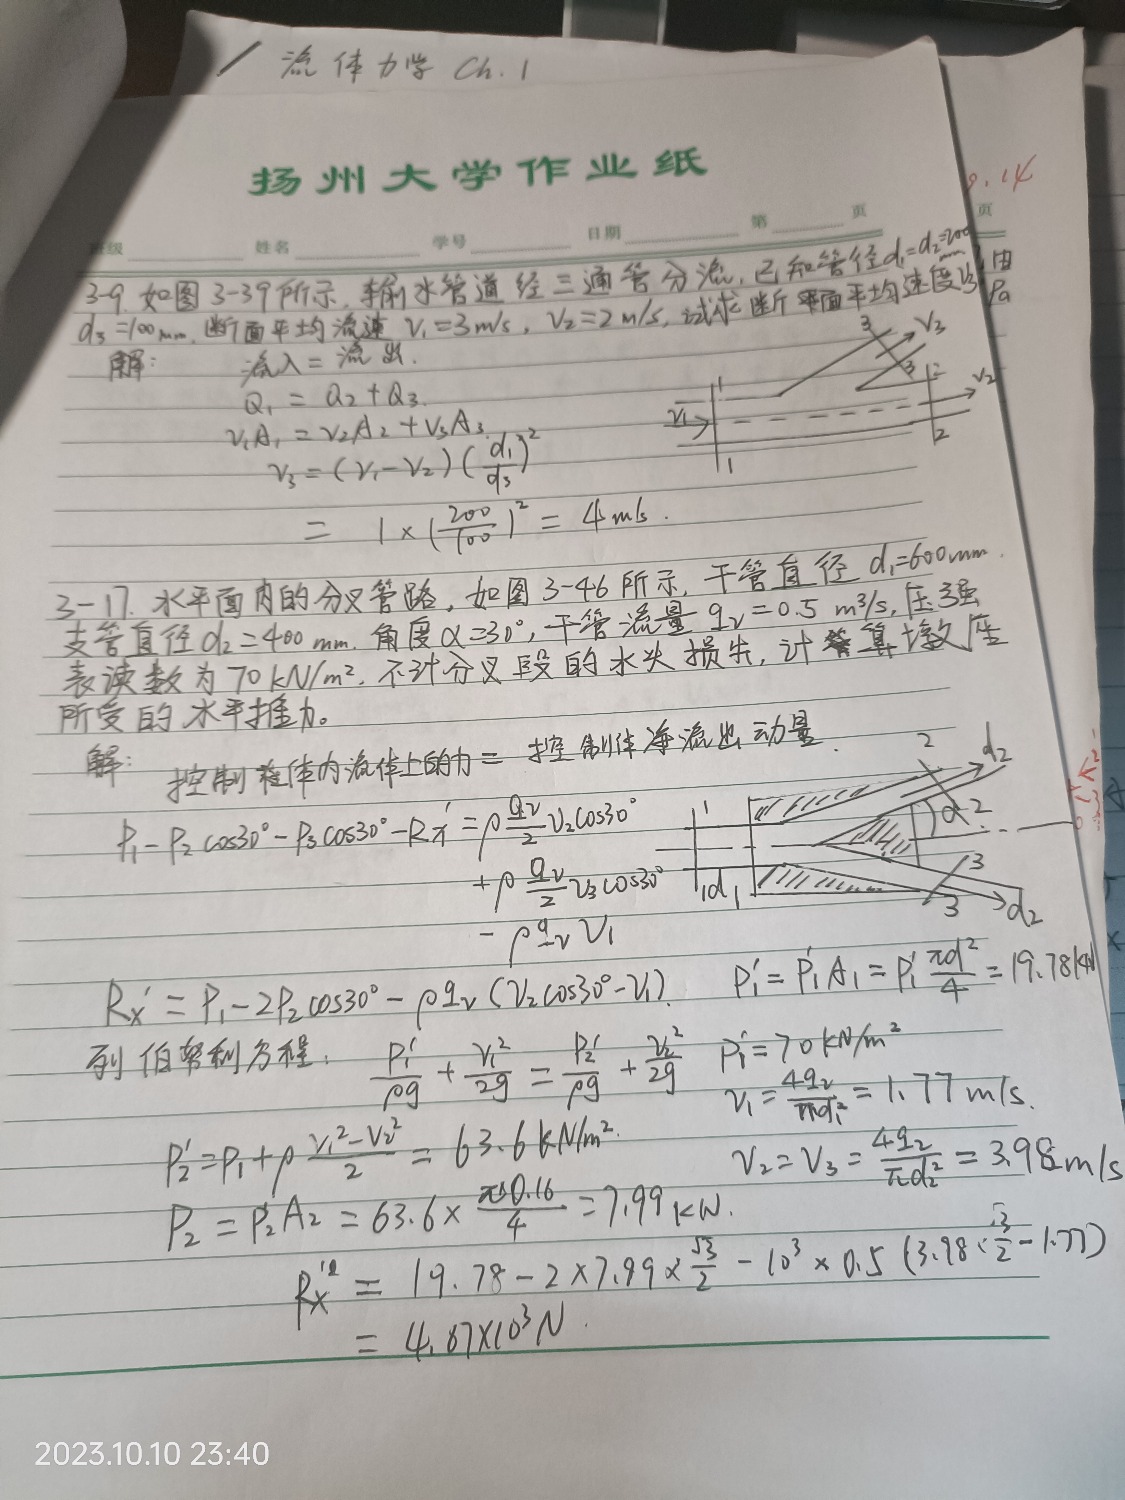 流体力学 Ch.1
扬州大学作业纸
9.14
班级 姓名 学号 日期 第 页
页
3-9. 如图3-39所示, 输水管道经三通管分流, 已知管径d₁=d₂=200mm
d₃=100mm, 断面平均流速 v₁=3m/s, v₂=2m/s, 试求断面平均速度v₃
由
Pa
解: 流入=流出.
Q₁ = Q₂+Q₃.
v₁A₁ = v₂A₂+v₃A₃.
v₃=(v₁-v₂)(d₁/d₃)²
= 1×(200/100)² = 4m/s.
1 1 2 2 3 3 v₁ v₂ v₃
3-17. 水平面内的分叉管路, 如图3-46所示, 干管直径 d₁=600mm.
支管直径d₂=400mm. 角度α=30°, 干管流量 q_v=0.5 m³/s, 压强
表读数为70kN/m². 不计分叉段的水头损失, 计算墩座
所受的水平推力。
解: 控制体内流体上的力 = 控制体净流出动量.
P₁-P₂cos30°-P₃cos30°-Rx' = ρ q_v/2 v₂cos30°
+ρ q_v/2 v₃cos30°
-ρq_v v₁
1 1 d₁ 2 2 d₂ α 3 3 d₂
Rx' = P₁-2P₂cos30°-ρq_v(v₂cos30°-v₁).
P₁' = P₁'A₁ = P₁' πd²/4 = 19.78kN
列伯努利方程: P₁'/ρg + v₁²/2g = P₂'/ρg + v₂²/2g
P₁'=70kN/m²
v₁ = 4q_v/πd₁² = 1.77m/s.
P₂'=P₁+ρ v₁²-v₂²/2 = 63.6kN/m².
v₂=v₃= 4q₂/πd₂² = 3.98m/s
P₂ = P₂'A₂ = 63.6× π×0.16/4 = 7.99kN.
Rx' = 19.78-2×7.99×√3/2-10³×0.5(3.98×√3/2-1.77)
= 4.07×10³N.
2023.10.10 23:40